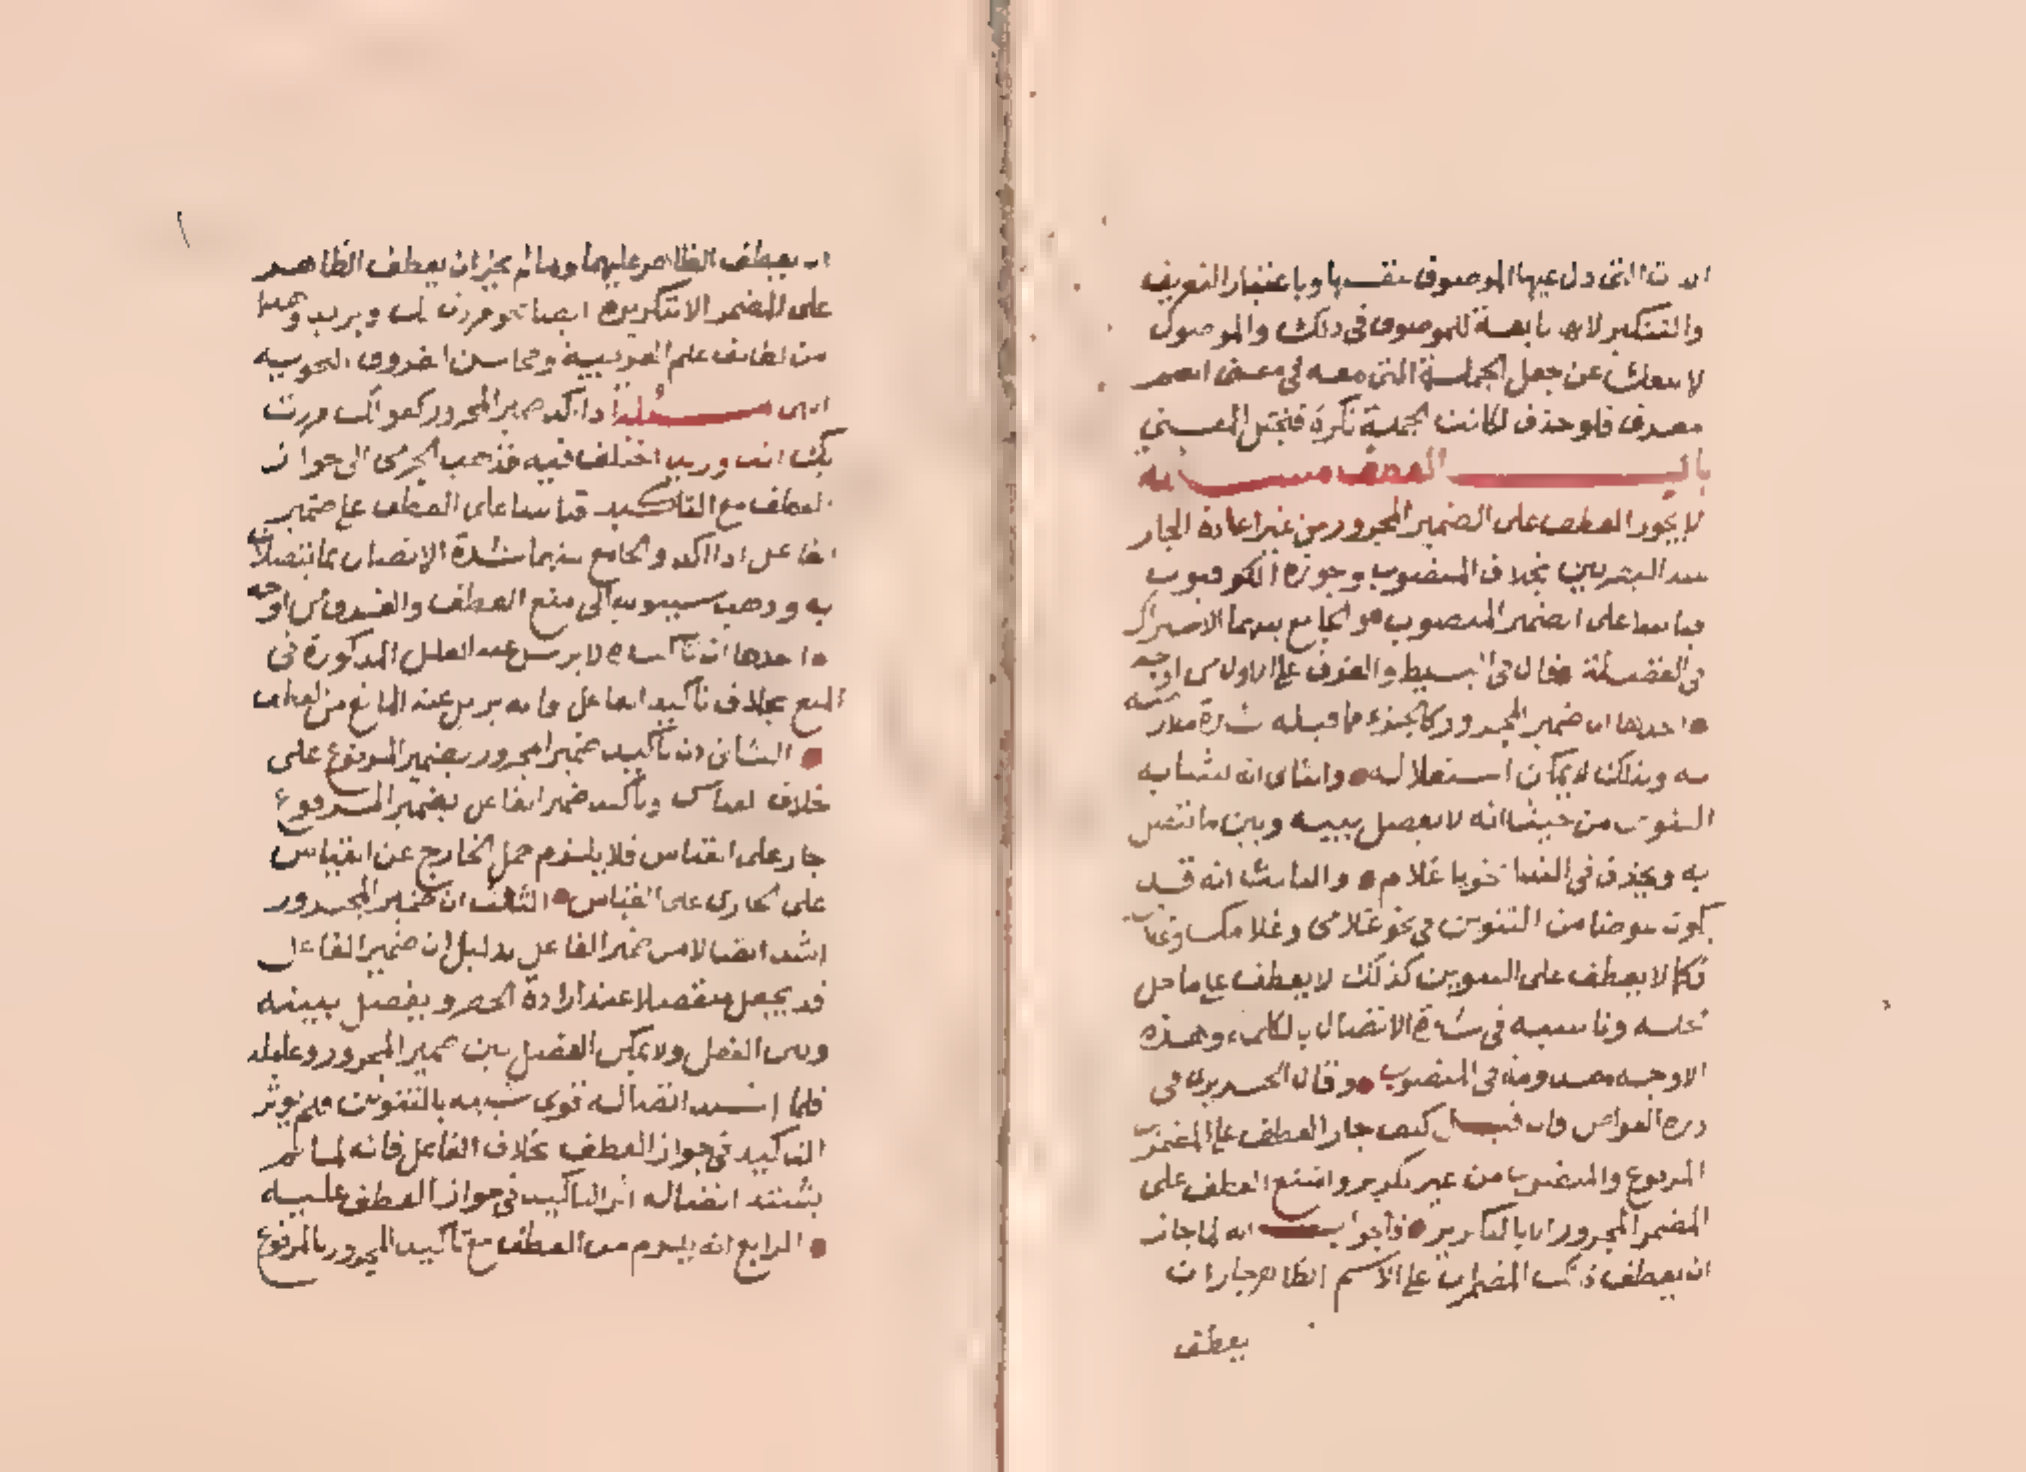 الذات التي دل عليها الموصوف بنفسها وباعتبار التعريف
والتنكير لانها تابعة للموصوف في ذلك والموصول
لا ينفك عن جعل الجملة التي معه في معنى اسم
معرف فلو حذف لكانت الجملة نكرة فيختل المعنى
باب العطف مسئلة
لا يجوز العطف على الضمير المجرور من غير اعادة الجار
عند البصريين بخلاف المنصوب وجوزه الكوفيون
قياسا على الضمير المنصوب والجامع بينهما الاشتراك
في الفضلة قال في البسيط والفرق على الاول من اوجه
احدها ان ضمير المجرور كالجزء مما قبله شدة ملازمته
به ولذلك لا يمكن استقلاله والثاني انه يشابه
التنوين من حيث انه لا يفصل بينه وبين ما يتصل
به ويحذف في النداء نحو يا غلام والثالث انه قد
يكون عوضا من التنوين في نحو غلامي وغلامك وغلامه
فكما لا يعطف على التنوين كذلك لا يعطف على ما حل
محله وناسبه في شدة الاتصال بالكلمة وهذه
الاوجه معدومة في المنصوب وقال الحريري في
درة الغواص فان قيل كيف جاز العطف على المضمرين
المرفوع والمنصوب من غير تكرير وامتنع العطف على
المضمر المجرور الا بالتكرير فالجواب انه لما جاز
ان يعطف ذلك المضمران على الاسم الظاهر جاز ان
يعطف
ان يعطف الظاهر عليهما ولما لم يجز ان يعطف الظاهر
على المضمر الا بتكريره ايضا نحو مررت بك وبزيد وهذا
من لطائف علم العربية ومحاسن الفروق النحوية
انتهى مسئلة اذا اكد ضمير المجرور كقولك مررت
بك انت وزيد اختلف فيه فذهب الجرمي الى جواز
العطف مع التاكيد قياسا على العطف على ضمير
الفاعل اذا اكد والجامع بينهما شدة الاتصال بما يتصلان
به وذهب سيبويه الى منع العطف والفرق من اوجه
احدها ان تاكيده لا يزيل عنه العلل المذكورة في
المنع بخلاف تاكيد الفاعل فانه يزيل عنه المانع من العطف
الثاني ان تاكيد ضمير المجرور بضمير المرفوع على
خلاف القياس وتاكيد ضمير الفاعل بضمير المرفوع
جار على القياس فلا يلزم حمل الخارج عن القياس
على الجاري على القياس الثالث ان ضمير المجرور
اشد اتصالا من ضمير الفاعل بدليل ان ضمير الفاعل
قد يجعل منفصلا عند ارادة الحصر ويفصل بينه
وبين الفعل ولا يمكن الفصل بين ضمير المجرور وعامله
فلما اشتد اتصاله قوي شبهه بالتنوين فلم يوثر
التاكيد في جواز العطف بخلاف الفاعل فانه لما لم
يشتد اتصاله اثر التاكيد في جواز العطف عليه
الرابع انه يلزم من العطف مع تاكيد المجرور بالمرفوع